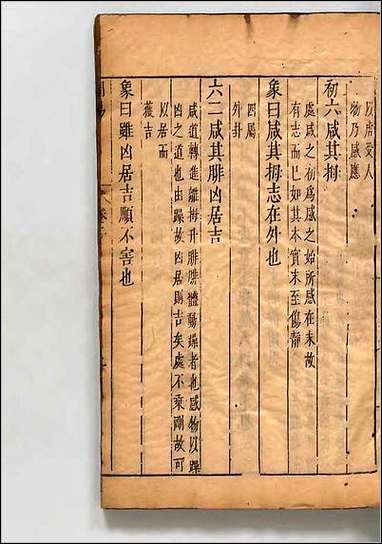 以虛受人
物乃感應
初六咸其拇
處咸之初為感之始所感在末故
有志而已如其本實未至傷靜
象曰咸其拇志在外也
四屬
外卦
六二咸其腓凶居吉
咸道轉進離拇升腓腓體動躁者也感物以躁
凶之道也由躁故凶居則吉矣處不乘剛故可
以居而
獲吉
象曰雖凶居吉順不害也